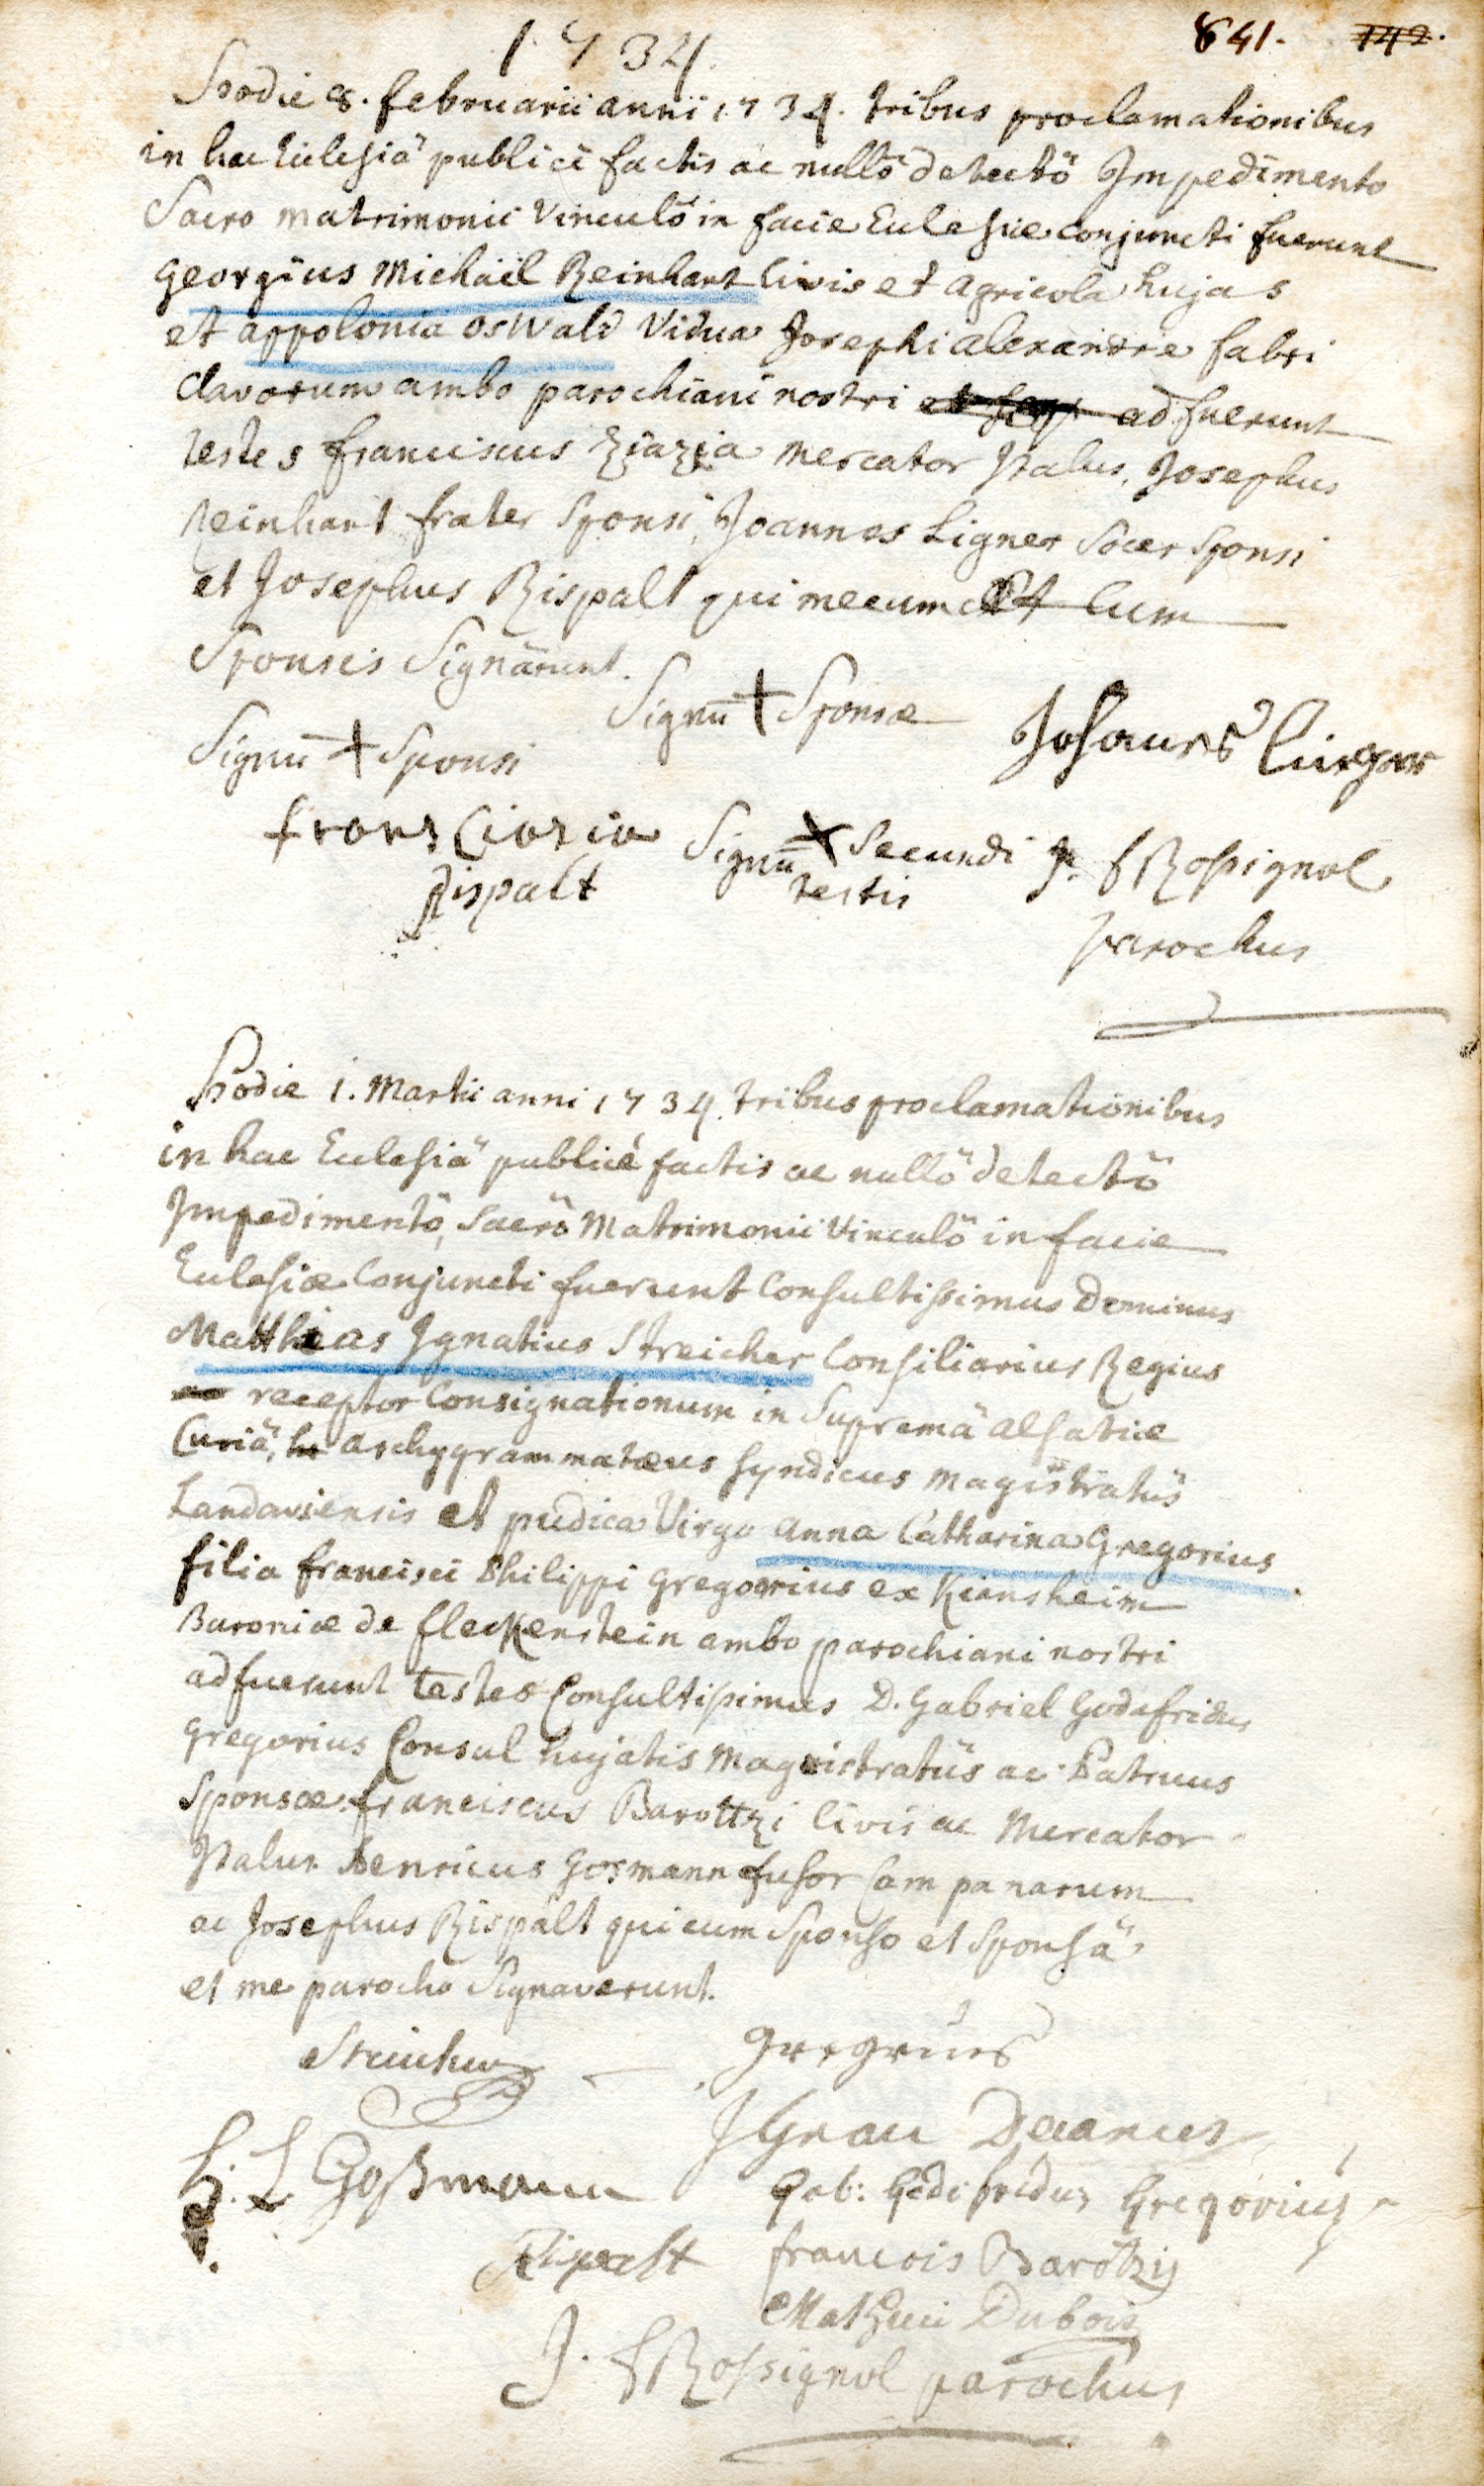 1734.
641. 142.
Hodie 8. februarii anni 1734. tribus proclamationibus
in hac Ecclesiâ publicè factis ac nullô detectô Impedimento
Sacro matrimonii Vinculô in facie Ecclesiæ conjuncti fuerunt
georgius Michaël Reinhart Civis et agricola hujas
et appolonia osWald Vidua Josephi alexandre fabri
clavorum ambo parochiani nostri adfuerunt
testes franciscus Ziazia mercator Italus, Josephus
Reinhart frater Sponsi, Joannes Ligner Socer Sponsi
et Josephus Rispalt qui mecum et cum
Sponsis Signârunt.
Signū + Sponsæ
Signū + Sponsi
Johannes Lirgner
franz Ciazia
Signū + Secundi
testis
J. f Rossignol
parochus
Rispalt
Hodie 1. Martii anni 1734. tribus proclamationibus
in hac Ecclesiâ publicè factis ac nullô detectô
Impedimentô, Sacrô Matrimonii Vinculô in facie
Ecclesiæ Conjuncti fuerunt Consultissimus Dominus
Matthias Ignatius Streicher Consiliarius Regius
receptor Consignationum in Supremâ alsatiæ
Curiâ, archygrammatæus Syndicus magistratûs
Landaviensis et pudica Virgo anna Catharina Gregorius
filia francisci Philippi gregorius ex Kiansheim
Baroniæ de fleckenstein ambo parochiani nostri
adfuerunt testes Consultissimus D. Gabriel Godefridus
gregorius Consul hujatis magistratûs ac Patruus
Sponsæ. franciscus Barottzi Civis ac Mercator
Italus. henricus gosmann fusor Campanarum
ac Josephus Rispalt qui cum Sponso et Sponsâ
et me parocho Signaverunt.
Streicher
gregorius
J Grau Decanus
H. L Goßmann
Gab: Godifridus Gregorius
Rispalt
francois Barotzy
Mathieu Dubois
J. f Rossignol parochus